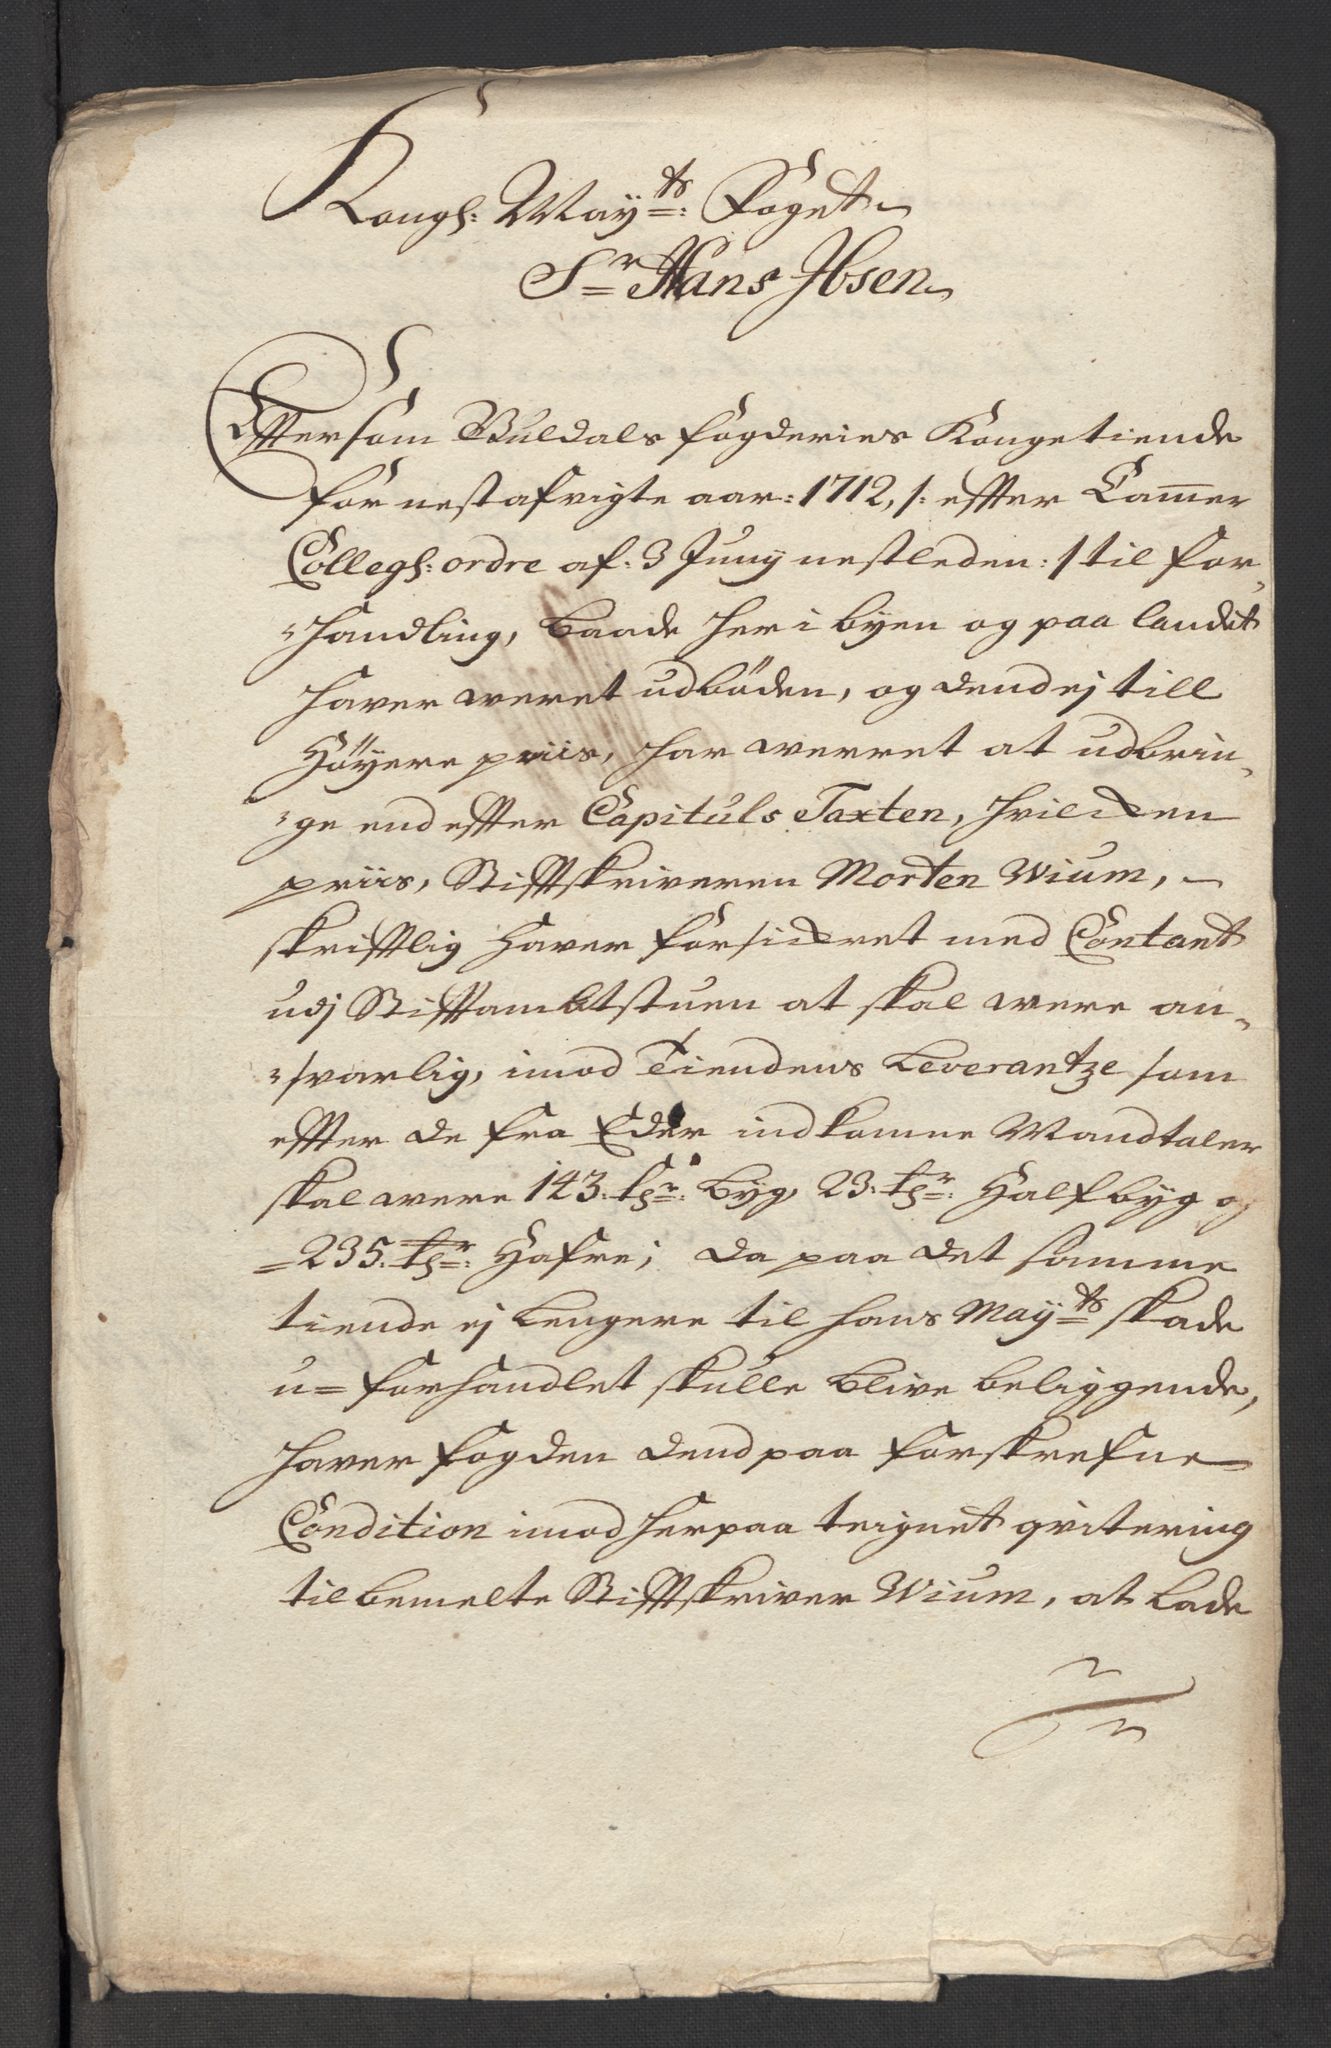 Kongl: May:ts Foget
Sr Hans Ibsen
Efftersom Guldals fogderies Kongetiende
for nestafvigte aar: 1712, /: effter Cammer
Collegl: ordre af: 3 Juny nestleden: / til for-
handling, baade her i byen og paa landet
haver weret udböden, og dend ej till
Höyere priis, har werret at udbrin-
ge end effter Capituls Taxten, hvilcken
priis, Stifftskriveren Morten Wium,
skrifftlig haver forsickret med Contant
udj Stifftambtstuen at skal were an-
svarlig, imod Tiendens Leverantze som
effter de fra Eder indkomne Mandtaler
skal were 143. tdr: byg, 23. tdr: Halfbyg og
235. tdr: Hafre; da paa det samme
tiende ej lengere til hans Mayts skade
u-forhandlet skulle blive beliggende,
haver fogden dend paa forskrefne
Condition imod herpaa teignet qvitering
til bemelte Stifftskriver Wium, at lade